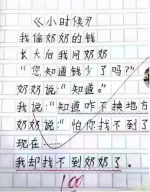 《小时候》
我偷奶奶的钱
长大后我问奶奶
“您知道钱少了吗？”
奶奶说：“知道。”
我说：“知道咋不换地方
奶奶说：“怕你找不到了
现在……
我却找不到奶奶了。
100